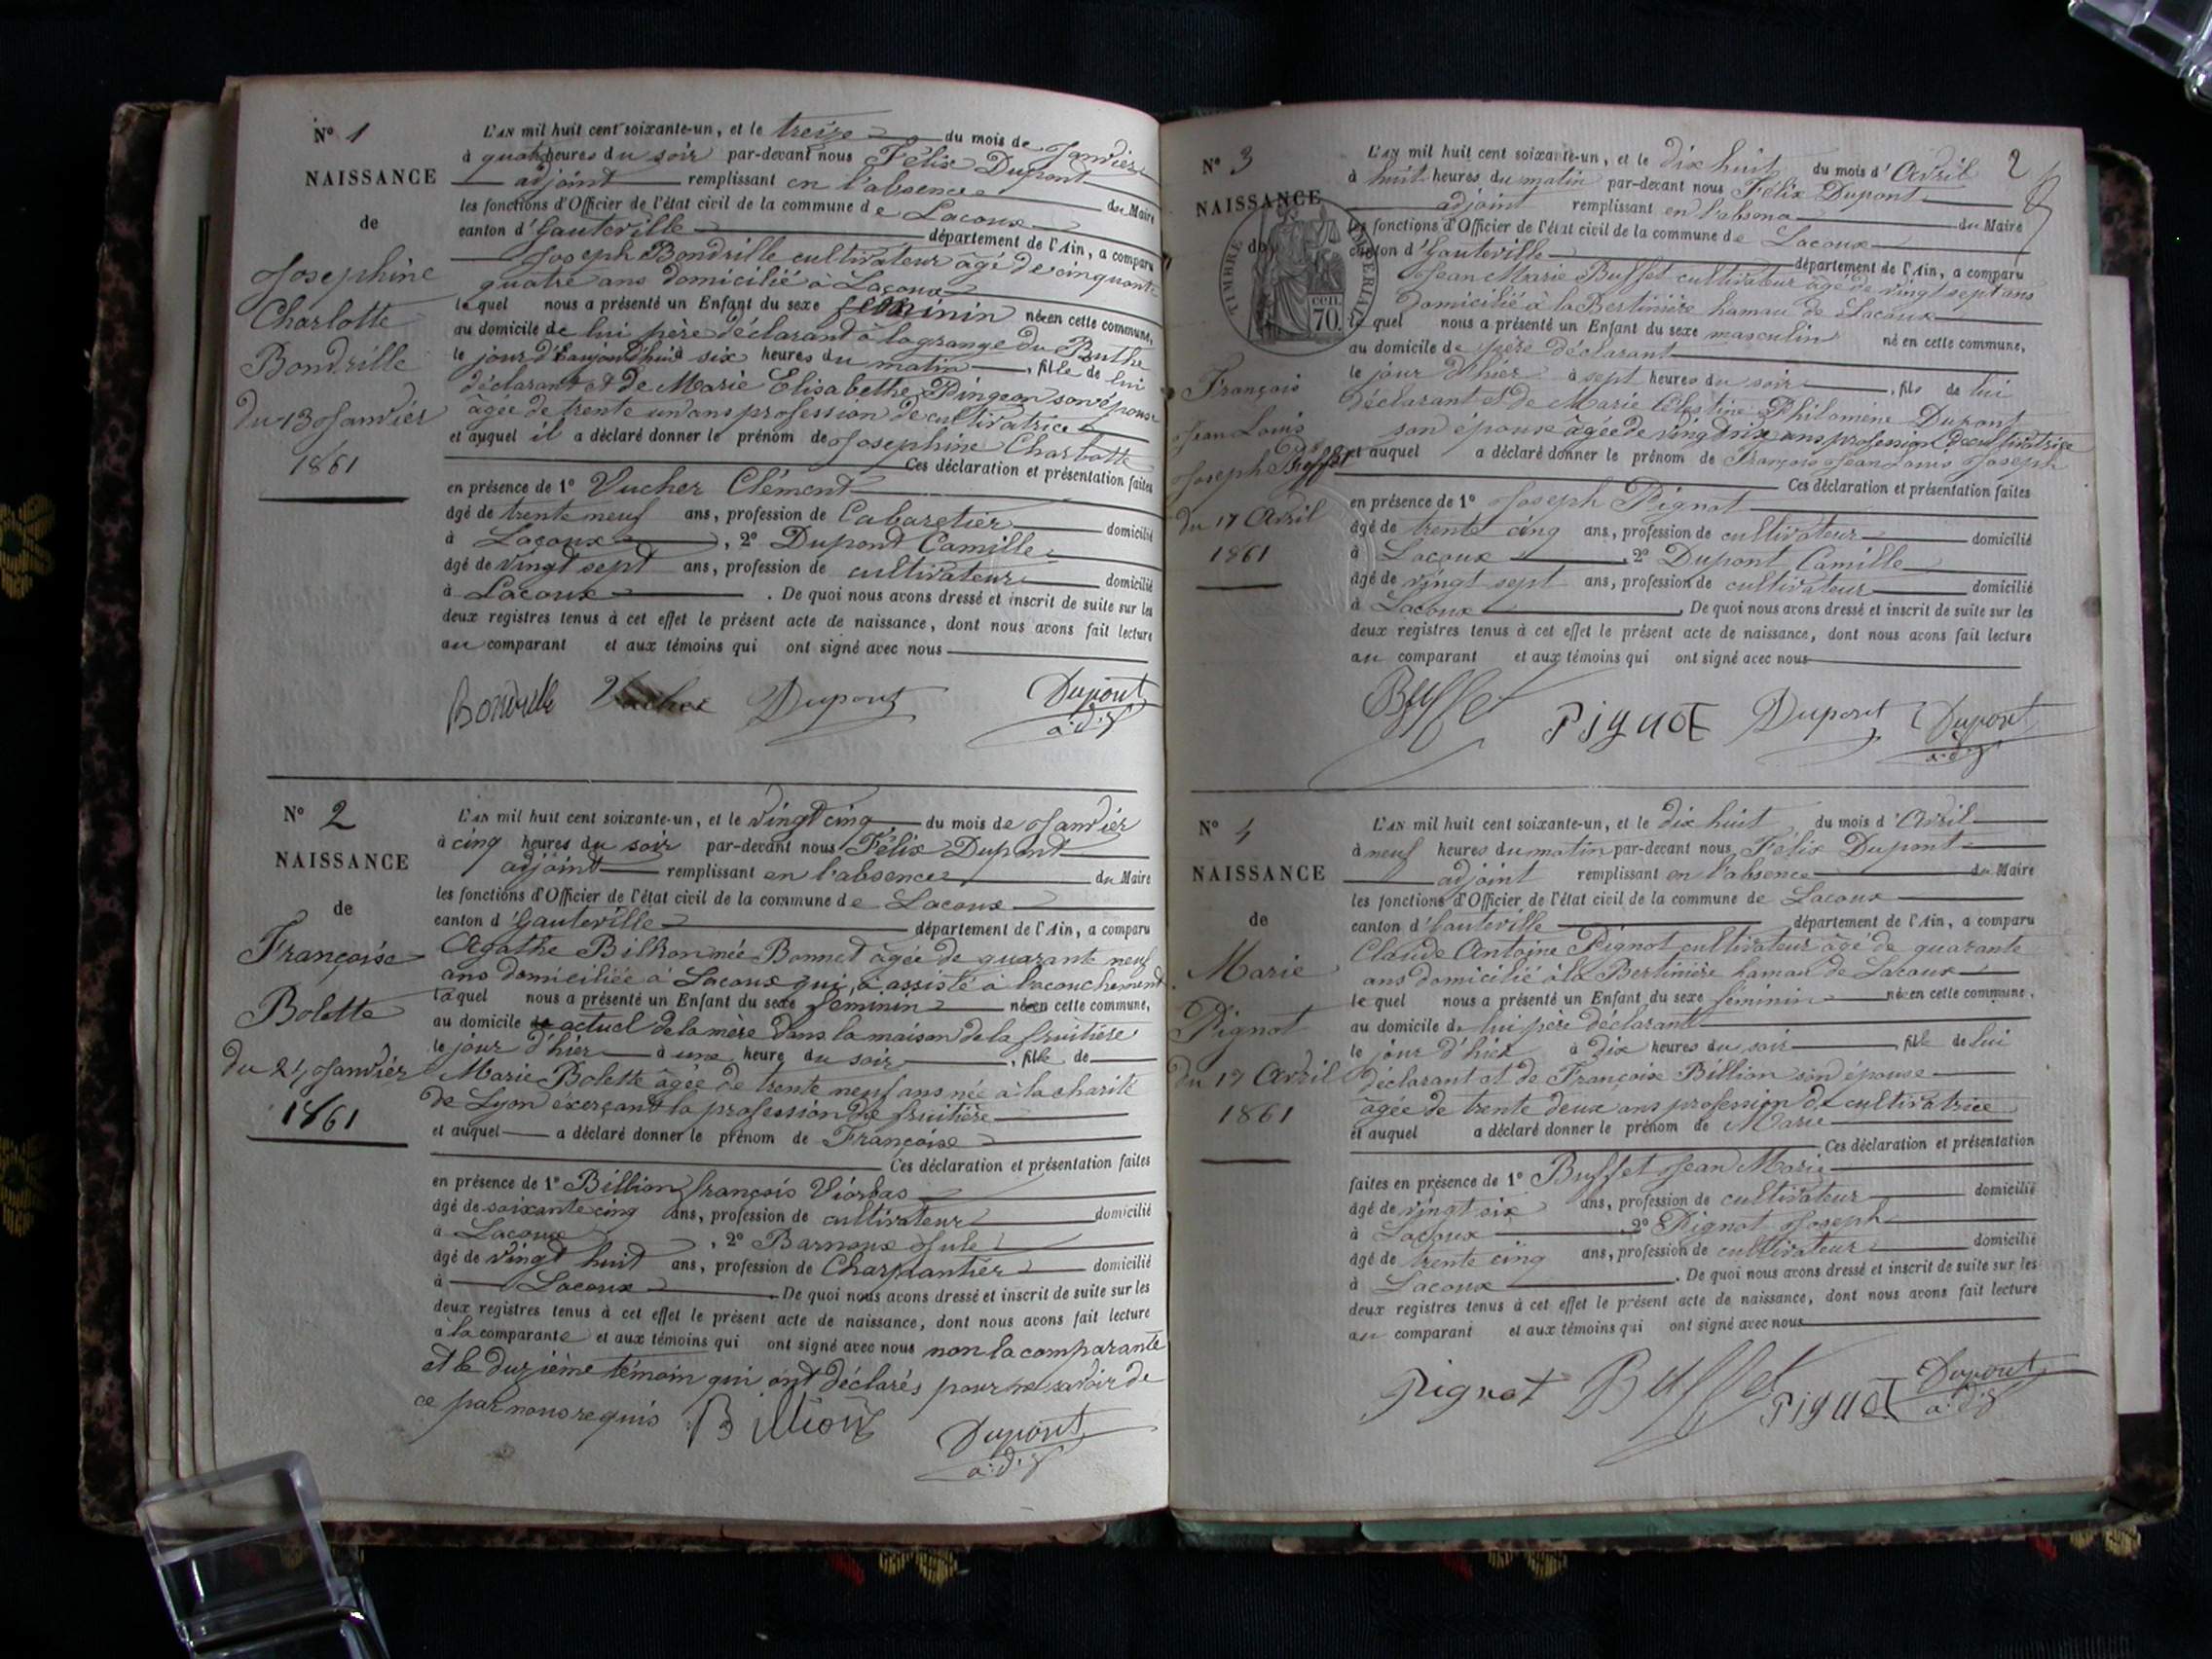 N° 1
NAISSANCE
de
Josephine
Charlotte
Bondrille
du 13 Janvier
1861
L'AN mil huit cent soixante-un, et le treize du mois de Janvier
à quatre heures du soir par-devant nous Félix Dupont
adjoint remplissant en l'absence du Maire
les fonctions d'Officier de l'état civil de la commune de Lacoux
canton d'hauteville département de l'Ain, a comparu
Joseph Bondrille cultivateur âgé de cinquante
quatre ans domicilié à Lacoux
lequel nous a présenté un Enfant du sexe féminin né en cette commune,
au domicile de lui père déclarant à la grange du
le jour d'aujourd'hui six heures du matin, fille de lui
déclarant et de Marie Elisabethe Pingeon son épouse
âgée de trente un ans profession de cultivatrice
et auquel il a déclaré donner le prénom de Josephine Charlotte
Ces déclaration et présentation faites
en présence de 1° Vucher Clément
âgé de trente neuf ans, profession de Cabaretier domicilié
à Lacoux, 2° Dupont Camille
âgé de vingt sept ans, profession de cultivateur domicilié
à Lacoux. De quoi nous avons dressé et inscrit de suite sur les
deux registres tenus à cet effet le présent acte de naissance, dont nous avons fait lecture
au comparant et aux témoins qui ont signé avec nous
Bondrille Vucher Dupont Dupont
a.d.j
N° 2
NAISSANCE
de
Françoise
Bolette
du 24 Janvier
1861
L'AN mil huit cent soixante-un, et le vingt cinq du mois de Janvier
à cinq heures du soir par-devant nous Félix Dupont
adjoint remplissant en l'absence du Maire
les fonctions d'Officier de l'état civil de la commune de Lacoux
canton d'hauteville département de l'Ain, a comparu
Agathe Billion née Bonnet âgée de quarante neuf
ans domiciliée à Lacoux qui a assisté à l'acouchement
laquel nous a présenté un Enfant du sexe féminin né en cette commune,
au domicile de actuel de la mère dans la maison de la fruitière
le jour d'hier à une heure du soir, fille de
Marie Bolette âgée de trente neuf ans née à la charité
de Lyon éxerçant la profession de fruitière
et auquel a déclaré donner le prénom de Françoise
Ces déclaration et présentation faites
en présence de 1° Billion françois
âgé de soixante cinq ans, profession de cultivateur domicilié
à Lacoux, 2° Barnoux Jule
âgé de vingt huit ans, profession de Charpantier domicilié
à Lacoux. De quoi nous avons dressé et inscrit de suite sur les
deux registres tenus à cet effet le présent acte de naissance, dont nous avons fait lecture
à la comparante et aux témoins qui ont signé avec nous non la comparante
et le duzième témoin qui ont déclarés pour ne savoir de
ce par nous requis Billion Dupont
a.d.j
N° 3
NAISSANCE
de
TIMBRE IMPERIAL
70 cen.
François
Jean Louis
Joseph Buffet
du 17 Avril
1861
2
L'AN mil huit cent soixante-un, et le dix huit du mois d'Avril
à huit heures du matin par-devant nous Félix Dupont
adjoint remplissant en l'absence du Maire
les fonctions d'Officier de l'état civil de la commune de Lacoux
canton d'hauteville département de l'Ain, a comparu
Jean Marie Buffet cultivateur âgé de vingt sept ans
domicilié à la Bertinière hamau de Lacoux
lequel nous a présenté un Enfant du sexe masculin né en cette commune,
au domicile de père déclarant
le jour d'hier à sept heures du soir, fils de lui
déclarant et de Marie Célestine Philomène Dupont
son épouse âgée de vingt six ans profession de cultivatrice
et auquel a déclaré donner le prénom de François Jean Louis Joseph
Ces déclaration et présentation faites
en présence de 1° Joseph Pignot
âgé de trente cinq ans, profession de cultivateur domicilié
à Lacoux, 2° Dupont Camille
âgé de vingt sept ans, profession de cultivateur domicilié
à Lacoux. De quoi nous avons dressé et inscrit de suite sur les
deux registres tenus à cet effet le présent acte de naissance, dont nous avons fait lecture
au comparant et aux témoins qui ont signé avec nous
Buffet Pignot Dupont Dupont
a.d.j
N° 4
NAISSANCE
de
Marie
Pignot
du 17 Avril
1861
L'AN mil huit cent soixante-un, et le dix huit du mois d'Avril
à neuf heures du matin par-devant nous Félix Dupont
adjoint remplissant en l'absence du Maire
les fonctions d'Officier de l'état civil de la commune de Lacoux
canton d'hauteville département de l'Ain, a comparu
Claude Antoine Pignot cultivateur âgé de quarante
ans domicilié à la Bertinière hamau de Lacoux
lequel nous a présenté un Enfant du sexe féminin né en cette commune,
au domicile de lui père déclarant
le jour d'hier à dix heures du soir, fille de lui
déclarant et de Françoise Billion son épouse
âgée de trente deux ans profession de cultivatrice
et auquel a déclaré donner le prénom de Marie
Ces déclaration et présentation
faites en présence de 1° Buffet Jean Marie
âgé de vingt six ans, profession de cultivateur domicilié
à Lacoux, 2° Pignot Joseph
âgé de trente cinq ans, profession de cultivateur domicilié
à Lacoux. De quoi nous avons dressé et inscrit de suite sur les
deux registres tenus à cet effet le présent acte de naissance, dont nous avons fait lecture
au comparant et aux témoins qui ont signé avec nous
Pignot Buffet Pignot Dupont
a.d.j